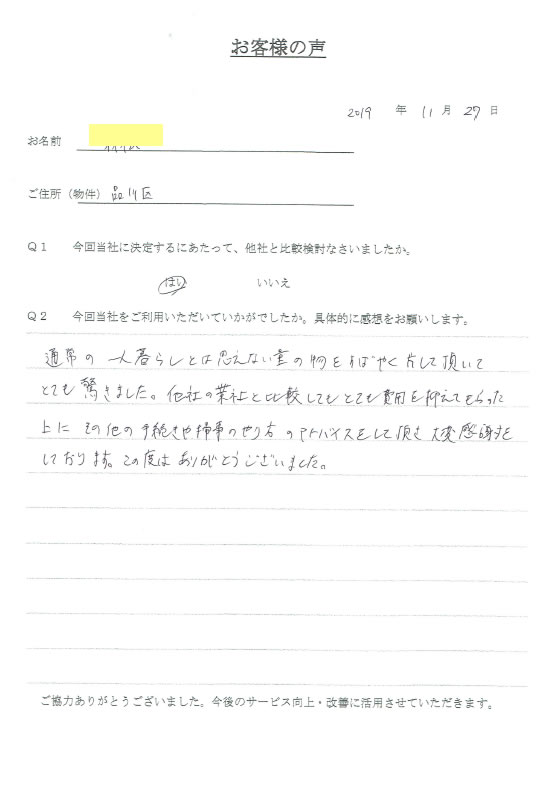 お客様の声
2019 年 11 月 27 日
お名前
ご住所（物件） 品川区
Q1 今回当社に決定するにあたって、他社と比較検討なさいましたか。
はい いいえ
Q2 今回当社をご利用いただいていかがでしたか。具体的に感想をお願いします。
通常の一人暮らしとは思えない量の物をすばやく片して頂いて
とても驚きました。他社の業社と比較してもとても費用を抑えてもらった
上に その他の手続きや掃事のやり方のアドバイスをして頂き大変感謝を
しております。この度はありがとうございました。
ご協力ありがとうございました。今後のサービス向上・改善に活用させていただきます。